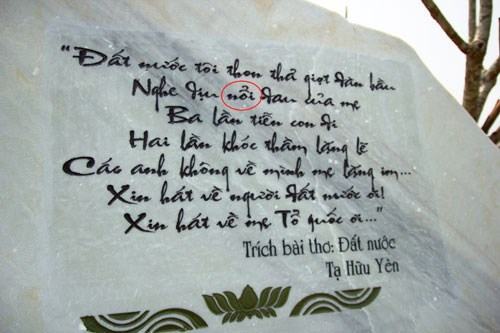 "Đất nước tôi thon thả giọt đàn bầu
Nghe dịu nổi đau của mẹ
Ba lần tiễn con đi
Hai lần khóc thầm lặng lẽ
Các anh không về mình mẹ lặng im...
Xin hát về người đất nước ơi!
Xin hát về mẹ Tổ quốc ơi..."
Trích bài thơ: Đất nước
Tạ Hữu Yên